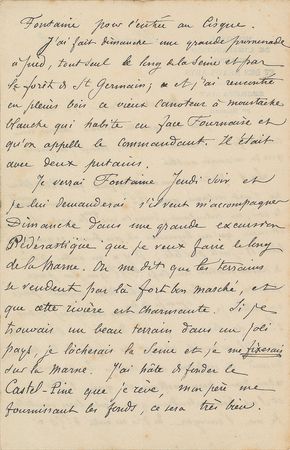 Fontaine pour l'entrée au Cirque.
J'ai fait dimanche une grande promenade
à pied, tout seul le long de la Seine et par
la forêt de St Germain; et j'ai rencontré
en pleins bois ce vieux canoteur à moustache
blanche qui habite en face Fournaise et
qu'on appelle le commandant. Il était
avec deux putains.
Je verrai Fontaine Jeudi soir et
je lui demanderai s'il veut m'accompagner
Dimanche dans une grande excursion
Pédestatique que je veux faire le long
de la Marne. On me dit que les terrains
se vendent par là fort bon marché, et
que cette rivière est charmante. Si je
trouvais un beau terrain dans un joli
pays, je lâcherais la Seine et je me fixerais
sur la Marne. J'ai hâte de fonder le
Castel-Pine que je rêve, mon père me
fournissant les fonds, ce sera très bien.